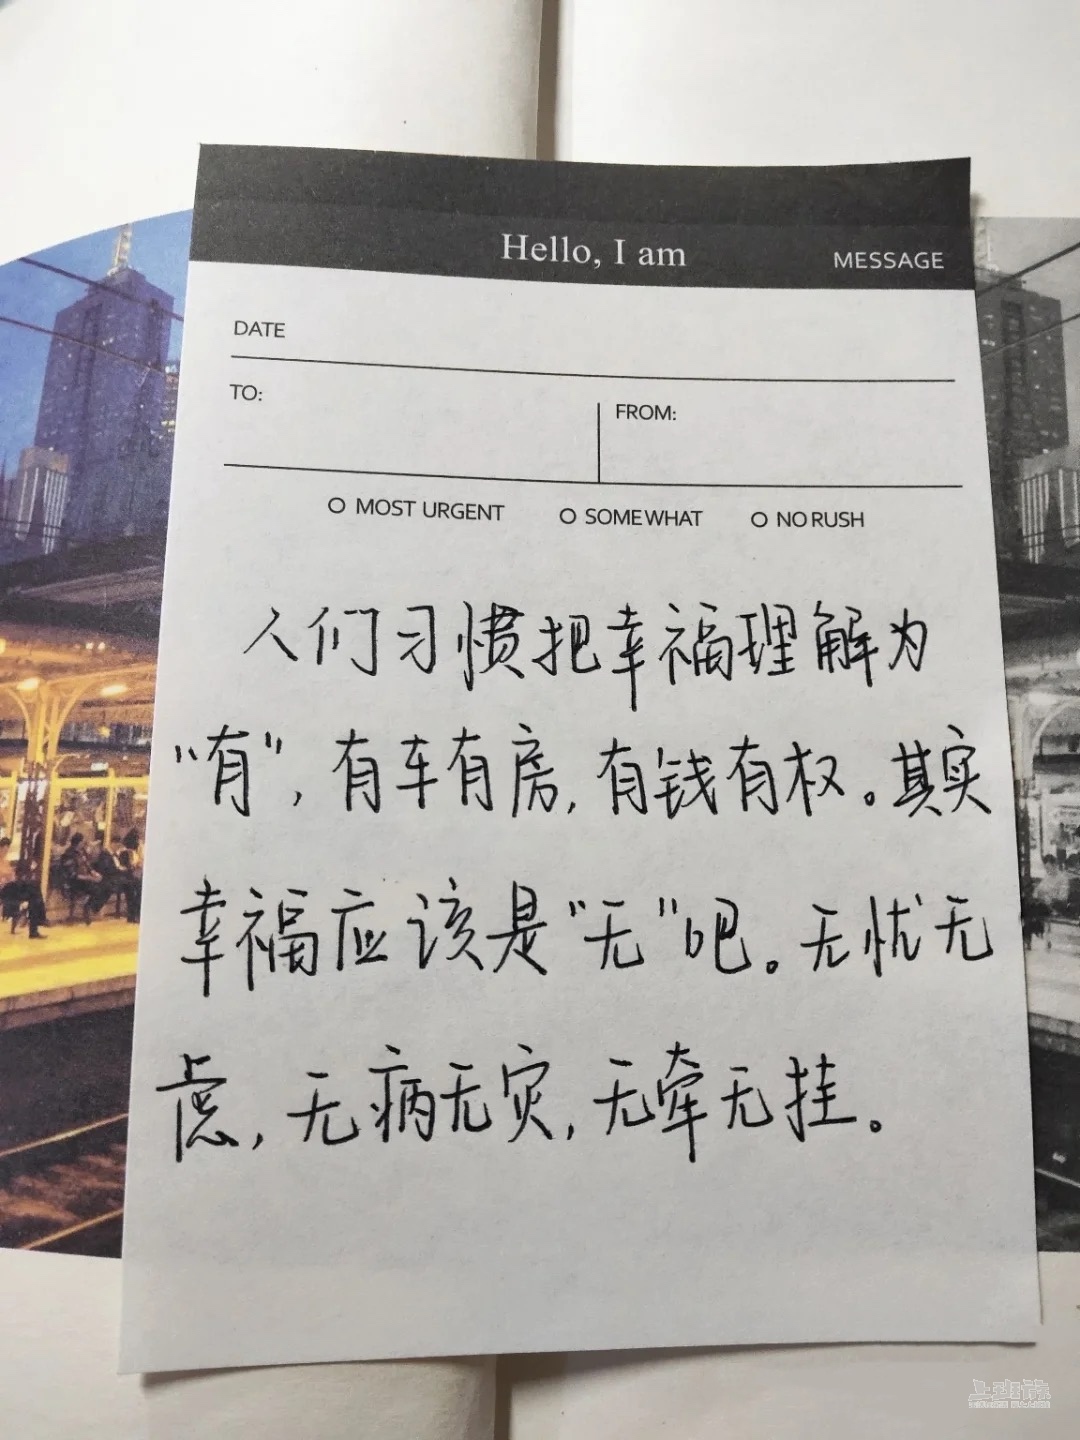 Hello, I am
MESSAGE
DATE
TO:
FROM:
O MOST URGENT O SOMEWHAT O NO RUSH
人们习惯把幸福理解为
“有”，有车有房，有钱有权。其实
幸福应该是“无”吧。无忧无
虑，无病无灾，无牵无挂。
上班族